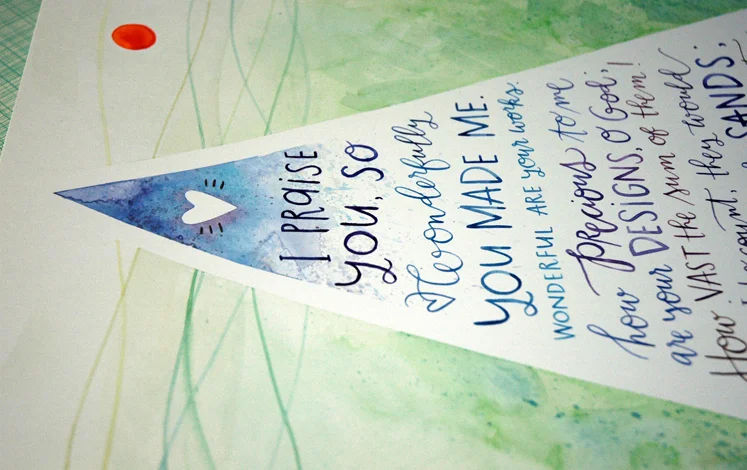 I PRAISE
YOU, SO
Wonderfully
YOU MADE ME.
WONDERFUL ARE your works.
Precious to me
how DESIGNS, O God;
are your sum of them!
How VAST the they would
count, SANDS,